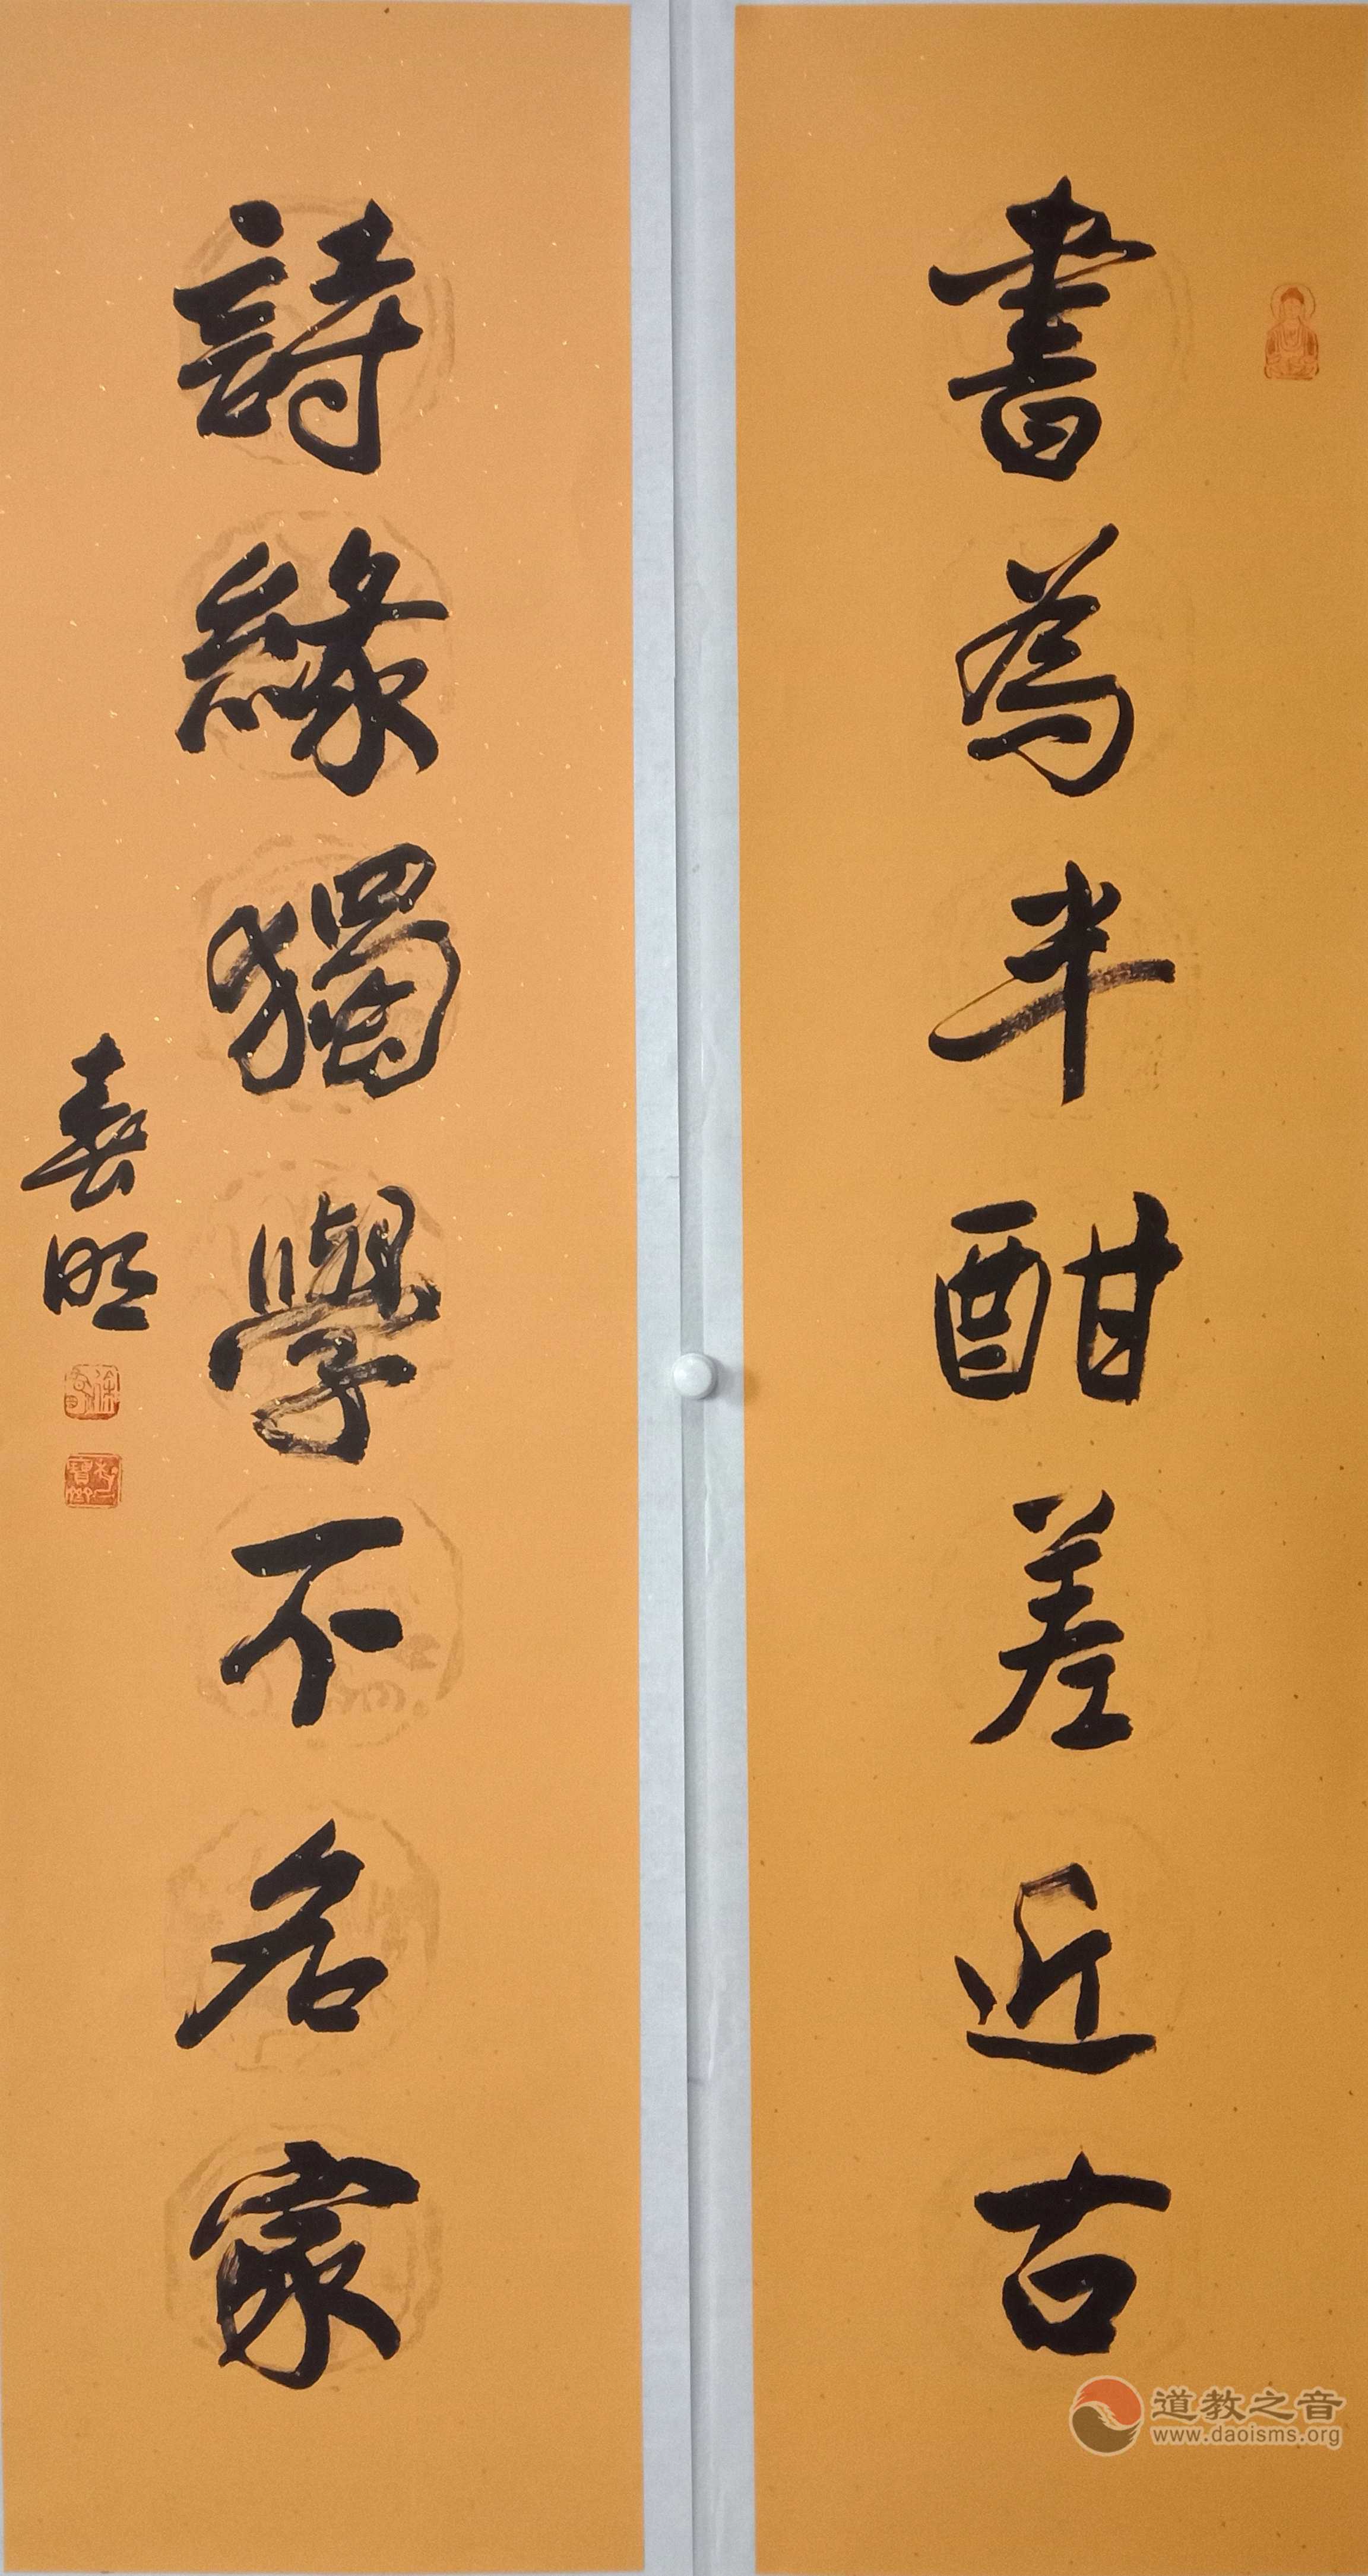 書為半酣差近古
詩緣獨學不名家
明
道教之音
www.daoisms.org